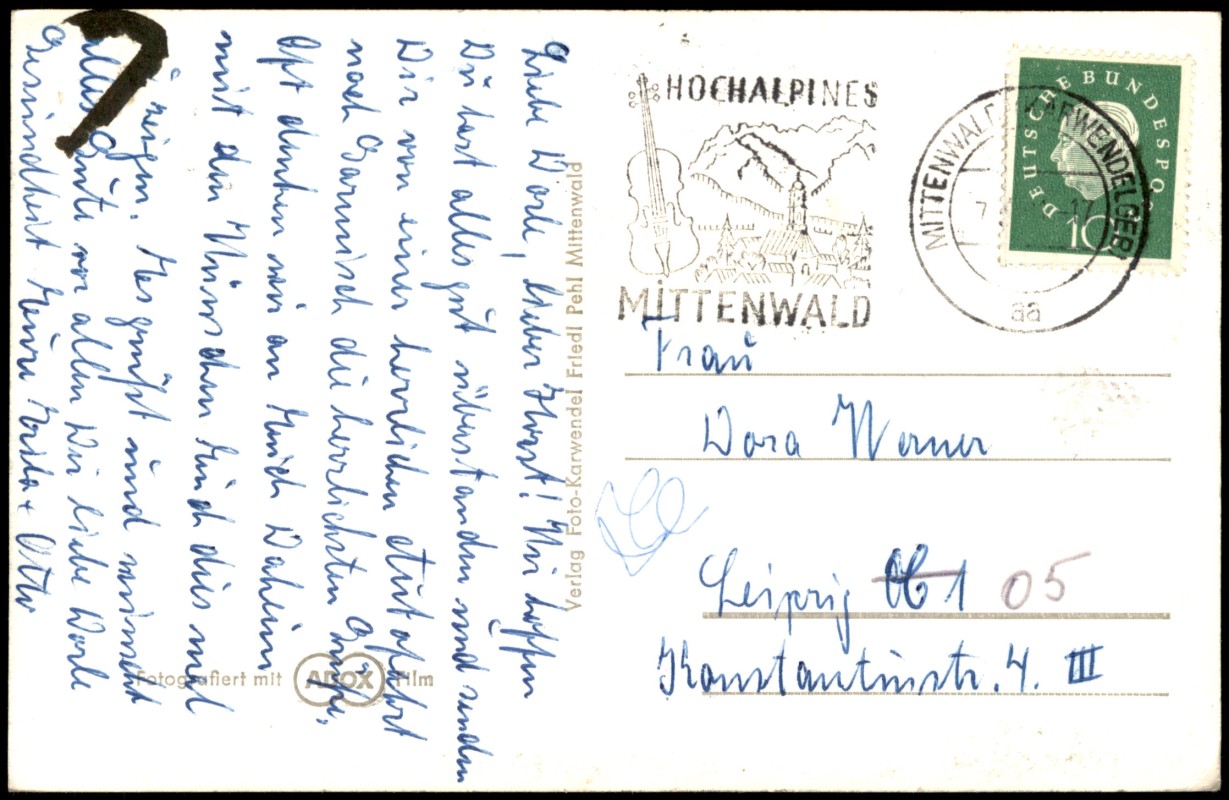 Liebe Dorle, lieber Horst! Wir hoffen
Du hast alles gut überstanden und senden
Dir von einer herrlichen Autofahrt
nach Garmisch die herrlichsten Grüße,
Oft denken wir an Euch Daheim
mit dem Wünschen Euch dies mal
zeigen. Es grüßt und wünscht
alles Gute vor allem Dir liebe Dorle
Gesundheit Eure + Otto
Verlag Foto-Karwendel Friedl Pehl Mittenwald
Fotografiert mit ADOX Film
HOCHALPINES
MITTENWALD
MITTENWALD (KARWENDELGEB)
7. 17
aa
DEUTSCHE BUNDESPOST
10
Frau
Dora Werner
Leipzig O5
Konstantinstr. 4. III